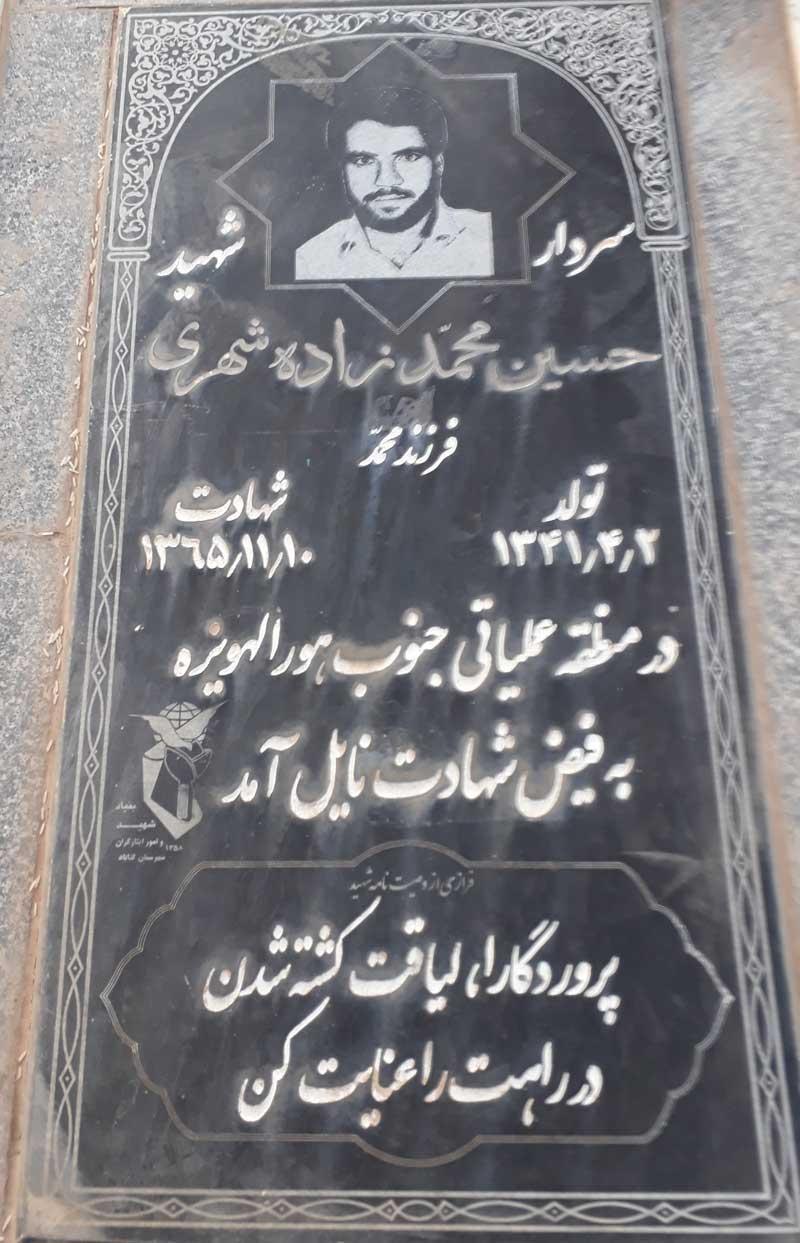 سردار شهید
حسین محمّدزاده شهری
فرزند محمّد
تولد شهادت
۱۳۴۱٫۴٫۲ ۱۳۶۵٫۱۱٫۱۰
در منطقه عملیاتی جنوب هورالهویزه
به فیض شهادت نایل آمد
بنیاد
شهید
و امور ایثارگران ۱۳۵۸
شهرستان گناباد
فرازی از وصیت نامه شهید
پروردگارا، لیاقت کشته شدن
در راهت را عنایت کن